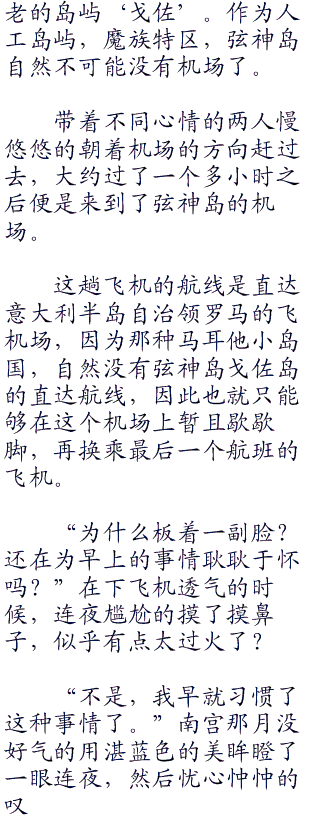 老的岛屿‘戈佐’。作为人
工岛屿，魔族特区，弦神岛
自然不可能没有机场了。
带着不同心情的两人慢
悠悠的朝着机场的方向赶过
去，大约过了一个多小时之
后便是来到了弦神岛的机
场。
这趟飞机的航线是直达
意大利半岛自治领罗马的飞
机场，因为那种马耳他小岛
国，自然没有弦神岛戈佐岛
的直达航线，因此也就只能
够在这个机场上暂且歇歇
脚，再换乘最后一个航班的
飞机。
“为什么板着一副脸？
还在为早上的事情耿耿于怀
吗？”在下飞机透气的时
候，连夜尴尬的摸了摸鼻
子，似乎有点太过火了？
“不是，我早就习惯了
这种事情了。”南宫那月没
好气的用湛蓝色的美眸瞪了
一眼连夜，然后忧心忡忡的
叹